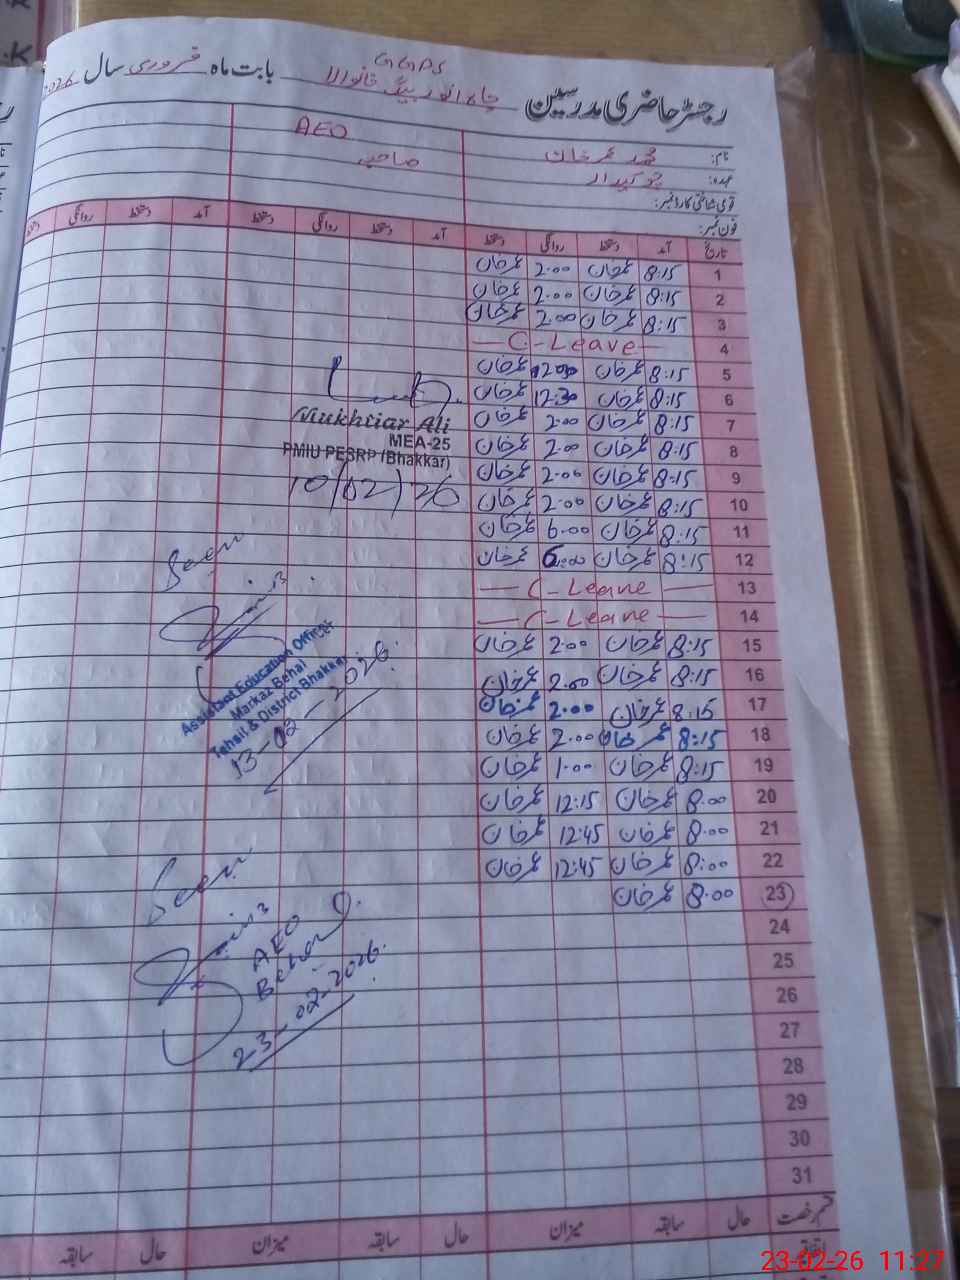 GGPS
رجسٹر حاضری مدرسین چاہ انور بیگ خانوالا بابت ماہ فروری سال 2026
نام: محمد عمر خان AEO
عہدہ: چوکیدار صاحب
قومی شناختی کارڈ نمبر:
فون نمبر:
تاریخ آمد دستخط روانگی دستخط آمد دستخط روانگی دستخط آمد دستخط روانگی دستخط
1 8:15 عمرخان 2.00 عمرخان
2 8:15 عمرخان 2.00 عمرخان
3 8:15 عمرخان 2.00 عمرخان
4 — C-Leave —
5 8:15 عمرخان عمرخان
6 8:15 عمرخان 12:30 عمرخان
7 8:15 عمرخان 2.00 عمرخان
8 8:15 عمرخان 2.00 عمرخان
9 8:15 عمرخان 2.00 عمرخان
10 8:15 عمرخان 2.00 عمرخان
11 8:15 عمرخان 6.00 عمرخان
12 8:15 عمرخان 6:00 عمرخان
13 — C-Leave —
14 — C-Leave —
15 8:15 عمرخان 2.00 عمرخان
16 8:15 عمرخان 2.00 عمرخان
17 8.15 عمرخان 2.00 عمرخان
18 8:15 عمرخان 2.00 عمرخان
19 8:15 عمرخان 1.00 عمرخان
20 8.00 عمرخان 12:15 عمرخان
21 8.00 عمرخان 12:45 عمرخان
22 8:00 عمرخان 12:45 عمرخان
23 8.00 عمرخان
24
25
26
27
28
29
30
31
Mukhtiar Ali
MEA-25
PMIU PESRP (Bhakkar)
10/02/26
Seen
Assistant Education Officer
Markaz Behal
Tehsil & District Bhakkar
13-02-2026.
Seen
AEO
Behal
23-02-2026.
قسم رخصت حال سابقہ میزان حال سابقہ میزان حال سابقہ
23-02-26 11:27